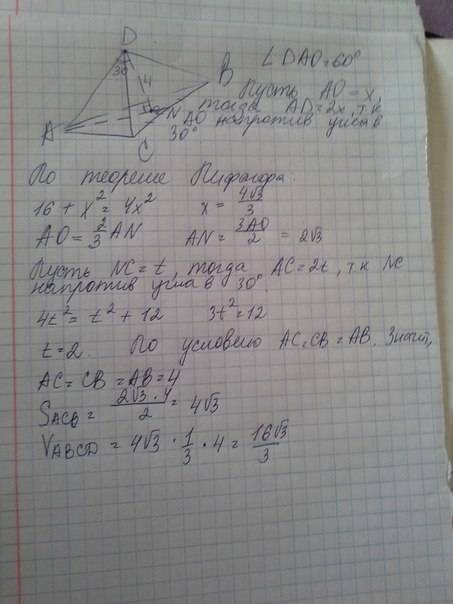 D
30
14
B
A
N
C
∠DAO=60°
Пусть AO = x,
тогда AD=2x, т.к
AO напротив угла в
30°
По теореме Пифагора:
16 + x² = 4x² x = 4√3/3
AO = 2/3 AN AN = 3AO/2 = 2√3
Пусть NC=t, тогда AC=2t, т.к NC
напротив угла в 30°
4t² = t² + 12 3t²=12
t=2. По условию AC=CB=AB. Значит,
AC = CB = AB = 4
S_ACB = 2√3·4/2 = 4√3
V_ABCD = 4√3 · 1/3 · 4 = 16√3/3